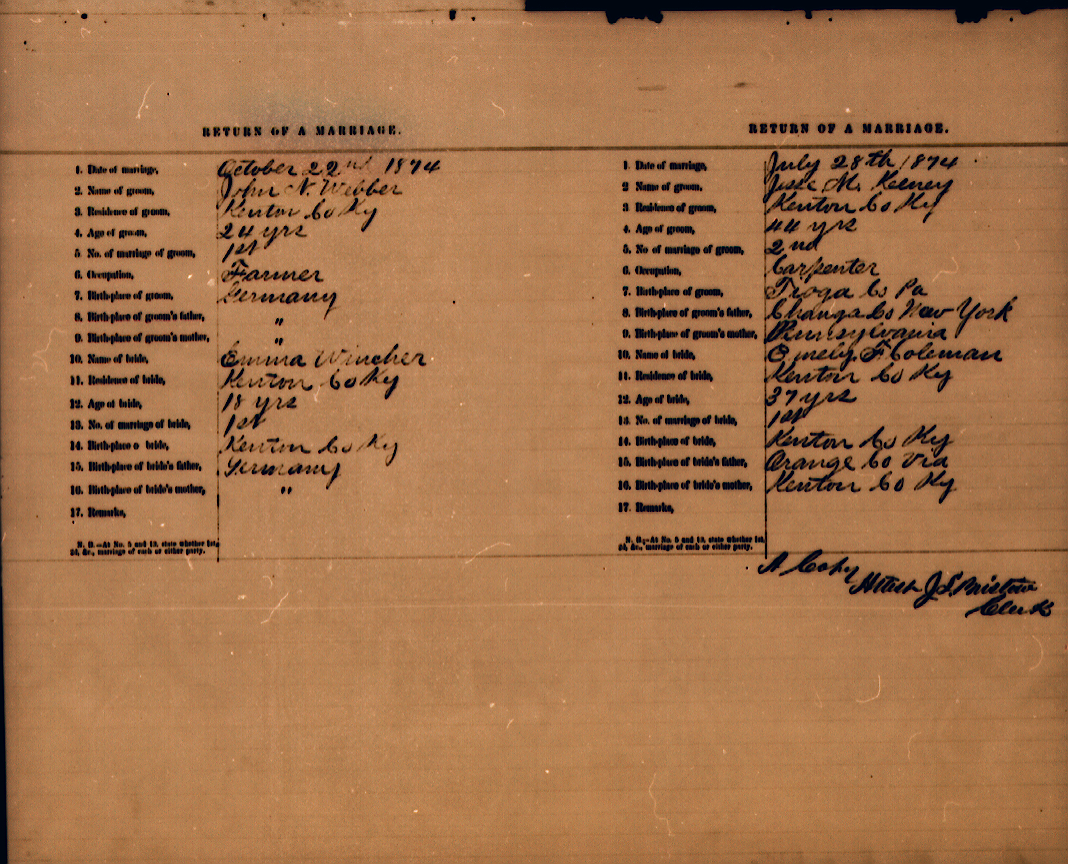 RETURN OF A MARRIAGE.
1. Date of marriage, October 22nd 1874
2. Name of groom, John N. Webber
3. Residence of groom, Kenton Co Ky
4. Age of groom, 24 yrs
5. No. of marriage of groom, 1st
6. Occupation, Farmer
7. Birth-place of groom, Germany
8. Birth-place of groom's father, "
9. Birth-place of groom's mother, "
10. Name of bride, Emma Wincher
11. Residence of bride, Kenton Co Ky
12. Age of bride, 18 yrs
13. No. of marriage of bride, 1st
14. Birth-place o bride, Kenton Co Ky
15. Birth-place of bride's father, Germany
16. Birth-place of bride's mother, "
17. Remarks,
N. B.—At No. 5 and 13, state whether 1st,
2d, &c., marriage of each or either party.
RETURN OF A MARRIAGE.
1. Date of marriage, July 28th 1874
2 Name of groom, M. Keeney
3 Residence of groom, Kenton Co Ky
4. Age of groom, 44 yrs
5. No of marriage of groom, 2nd
6. Occupation, Carpenter
7. Birth-place of groom, Tioga Co Pa
8. Birth-place of groom's father, Co New York
9. Birth-place of groom's mother, Pennsylvania
10. Name of bride, Emely F Coleman
11. Residence of bride, Kenton Co Ky
12. Age of bride, 37 yrs
13. No. of marriage of bride, 1st
14. Birth-place of bride, Kenton Co Ky
15. Birth-place of bride's father, Orange Co Via
16. Birth-place of bride's mother, Kenton Co Ky
17. Remarks,
N. B.—At No. 5 and 13, state whether 1st,
2d, &c., marriage of each or either party.
A Copy
Attest J. S. Bristow
Clerk